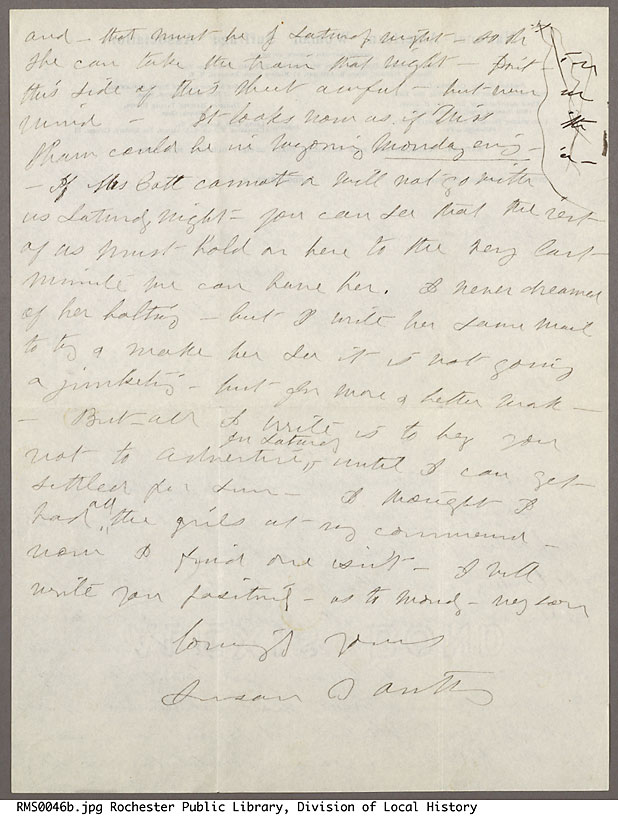 and - that must be for Saturday night - so
she can take the train that night -
this side of this sheet awful - but never
mind - It looks now as if Miss
could be in Wyoming Monday eve'g -
- If Mrs Catt cannot or will not go with
us Saturday night - you can see that the rest
of us must hold on here to the very last
minute we can have her. I never dreamed
of her halting - but I write her same mail
to try & make her see it is not going
a jinketing - but for more & better work -
- But all I write is to beg you
for Saturday
not to advertise, until I can get
settled for sure - I thought I
had all the girls at my command -
now I find one isn't - I will
write you positively - as to Monday - very soon
Lovingly yours
Susan B Anthony
RMS0046b.jpg Rochester Public Library, Division of Local History